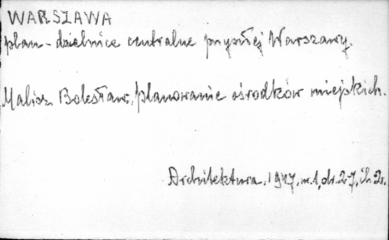 WARSZAWA
plan - dzielnice centralne przyszłej Warszawy.
Malisz Bolesław, planowanie ośrodków miejskich.
Architektura. 1947, nr. 1, str. 2-7, il. 2s.